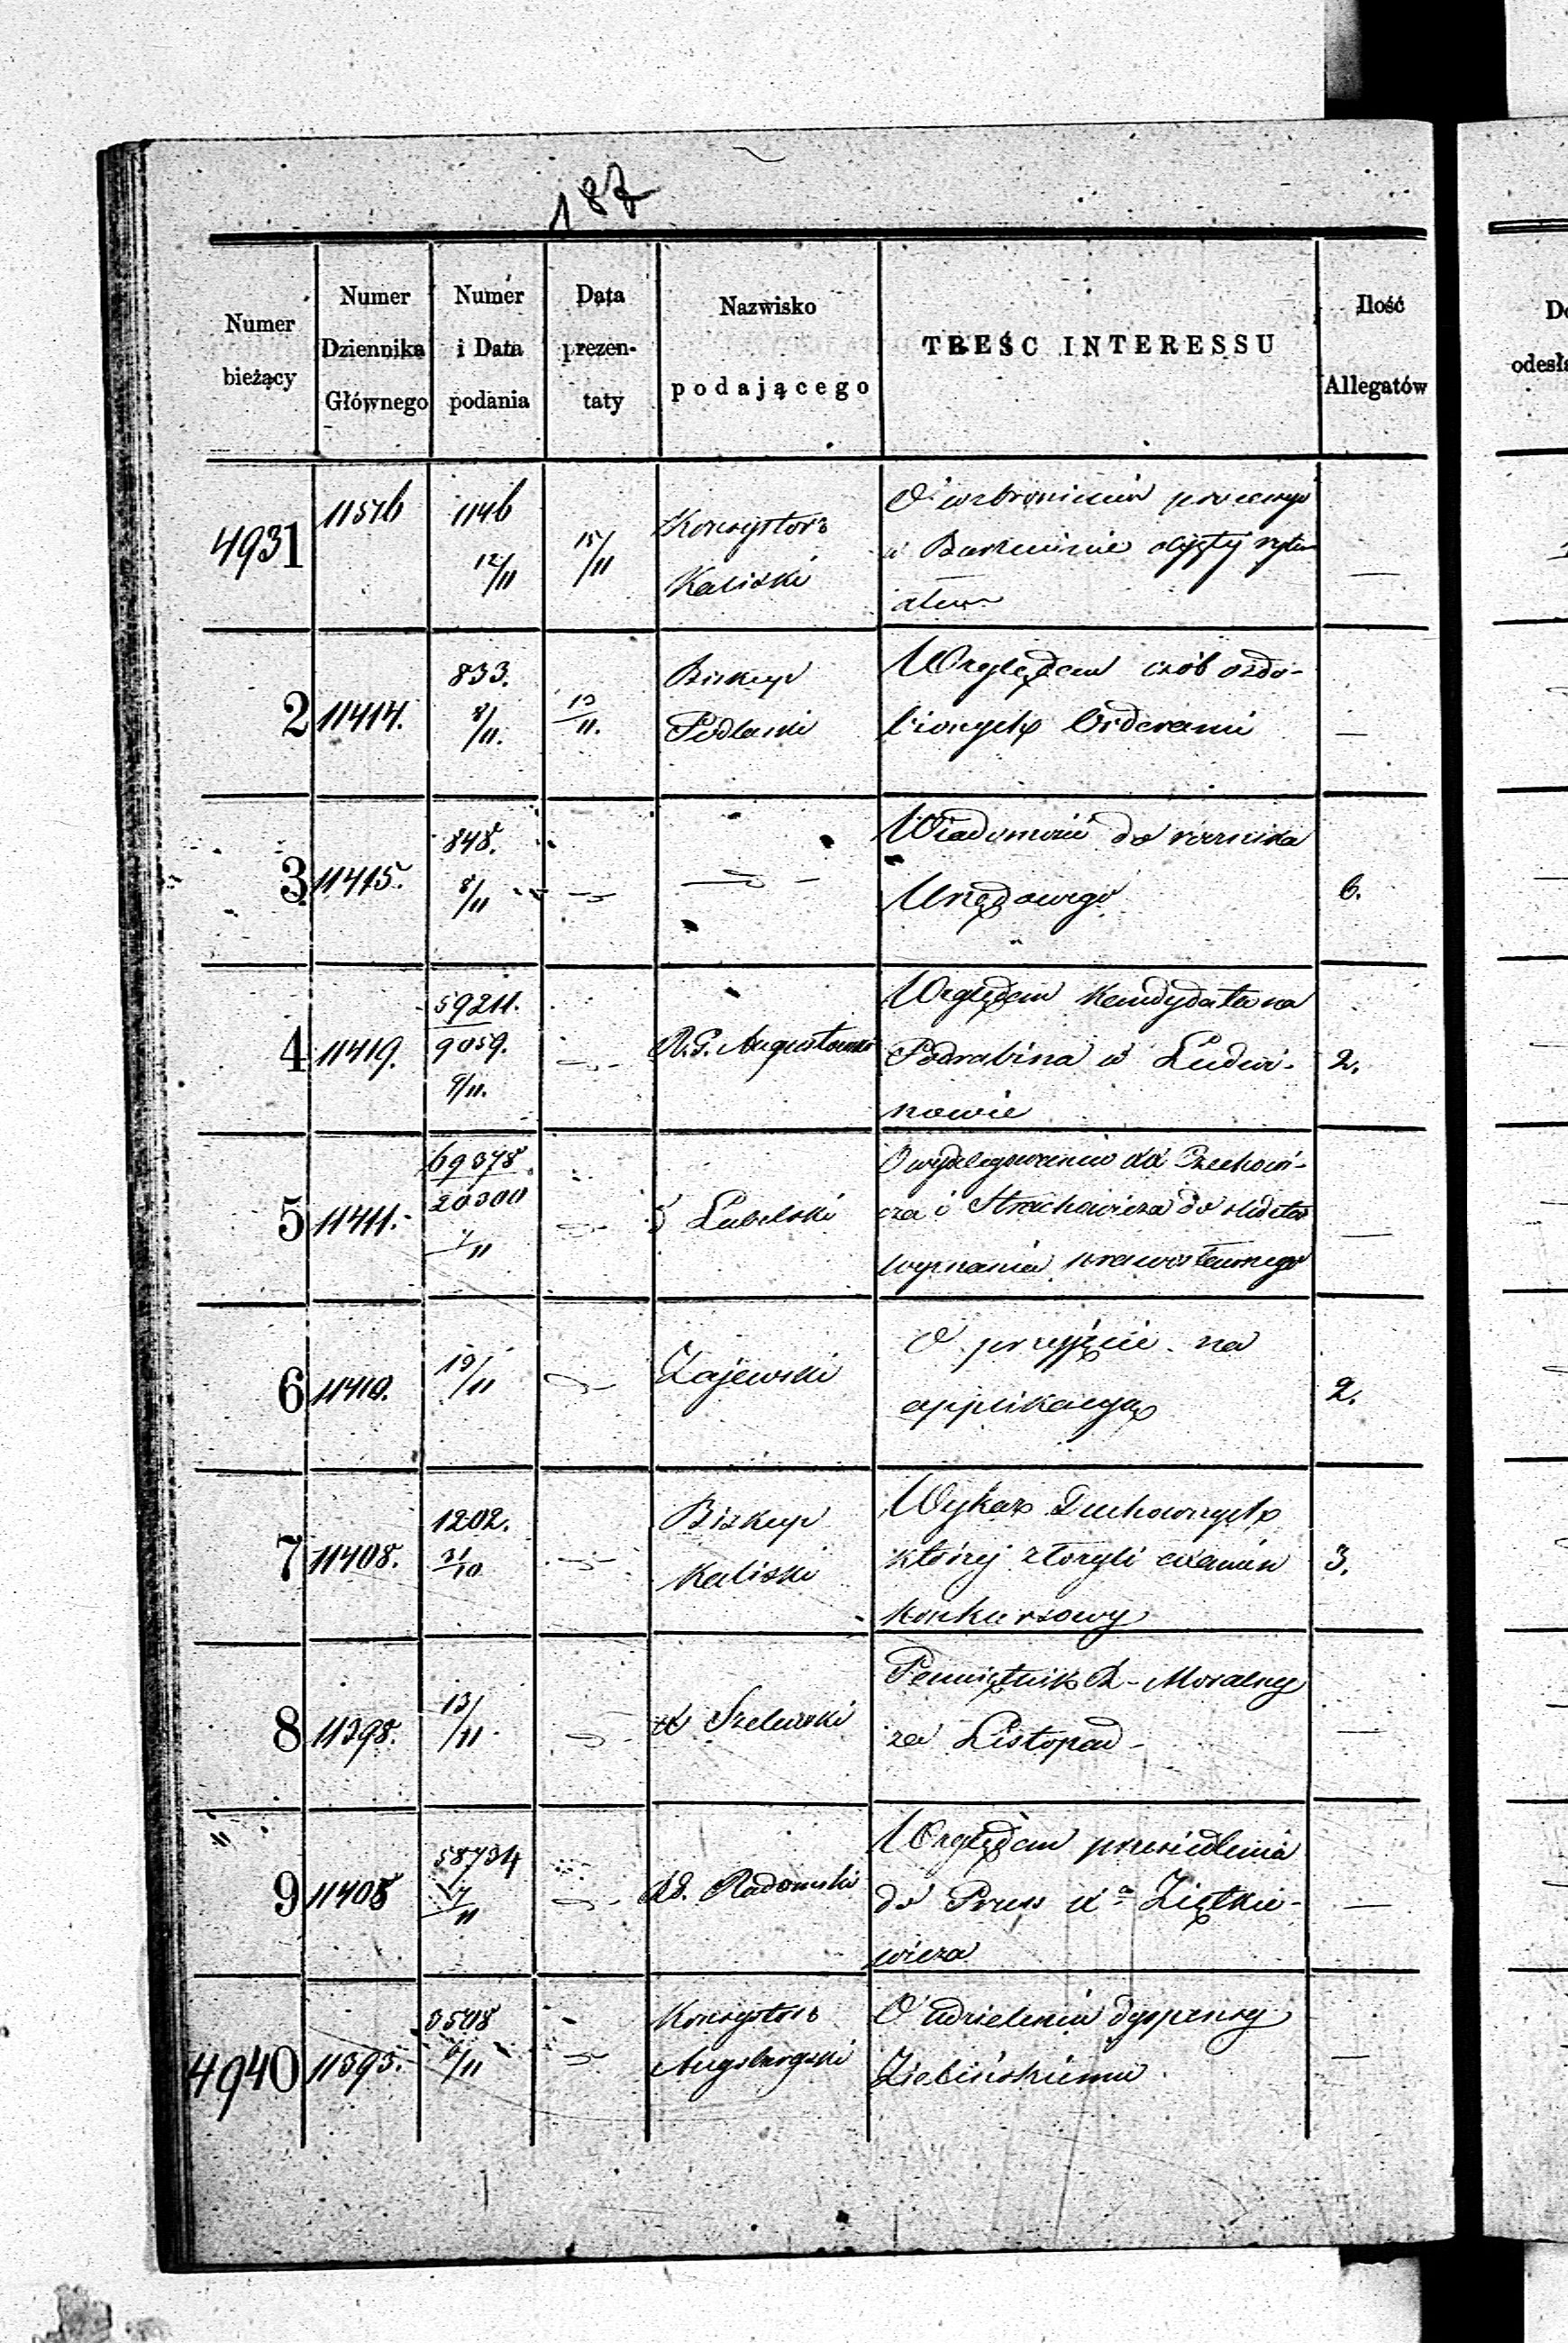 187
Numer bieżący
Numer Dziennika Głównego
Numer i Data podania
Data prezen- taty
Nazwisko podającego
TREŚC INTERESSU
Ilość Allegatów
4931 11516 1146 12/11 15/11 Konsystorz Kaliski
O wzbronienie processyi
w odjętej
—
2 11414. 833. 8/11. 13/11. Biskup Podlaski
Względem osób ozdo-
bionych Orderami
—
3 11415. 848. 8/11 — —
Wiadomości do rocznika
Urzędowego
6.
4 11419. 59211. 9059. 9/11. — R.G. Augustowski
Względem Kandydata na
Podrabina w Ludwi-
nowie
2.
5 11411. 69378. 20300 7/11 — Lubelski
O wydelegowaniu XX Czechowi-
cza i Strachowicza do
wyznania prawosławnego
—
6 11410. 13/11 — Zajewski
O przyjęcie na
applikacyą
2.
7 11408. 1202. 31/10 — Biskup Kaliski
Wykaz Duchownych
którzy złożyli examin
konkursowy
3.
8 11398. 13/11 — X Szelewski
Pamiętnik R-Moralny
za Listopad
—
9 11405 58734 7/11 — Radomski
Względem przesiedlenia
do Pruss Xa Ziętkie-
wicza
—
4940 11393. 3508 6/11 — Konsystorz Augsburgski
O udzielenie dyspensy
Zielińskiemu
—
Do
odesła